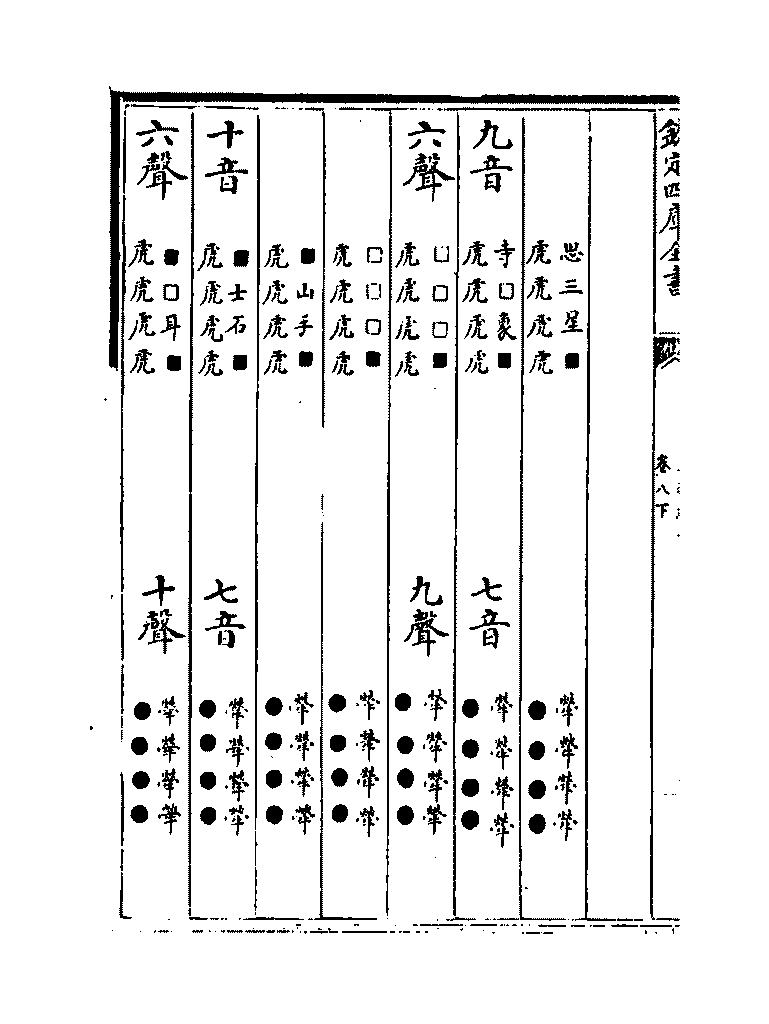 欽定四庫全書
卷八下
思三星■
虎虎虎虎
犖犖犖犖
●●●●
九音
寺□象■
虎虎虎虎
七音
犖犖犖犖
●●●●
六聲
□□□■
虎虎虎虎
九聲
犖犖犖犖
●●●●
□□□■
虎虎虎虎
犖犖犖犖
●●●●
■山手■
虎虎虎虎
犖犖犖犖
●●●●
十音
■士石■
虎虎虎虎
七音
犖犖犖犖
●●●●
六聲
■□耳■
虎虎虎虎
十聲
犖犖犖犖
●●●●